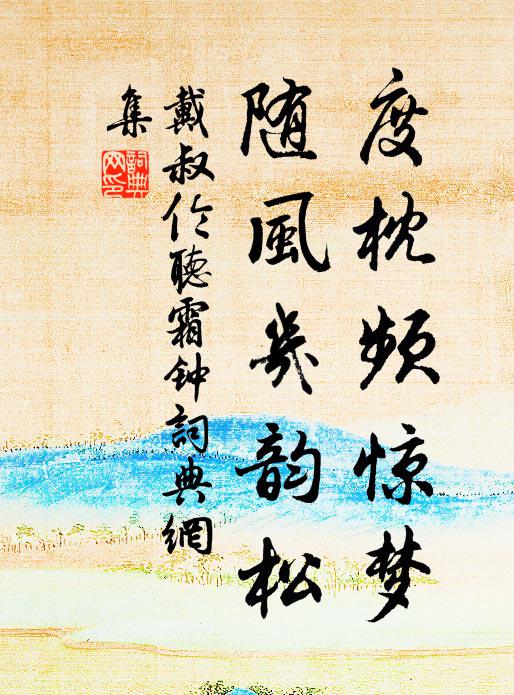 度枕频惊梦
随风几韵松
戴叔伦聽霜钟詞典網
集
詞典网印